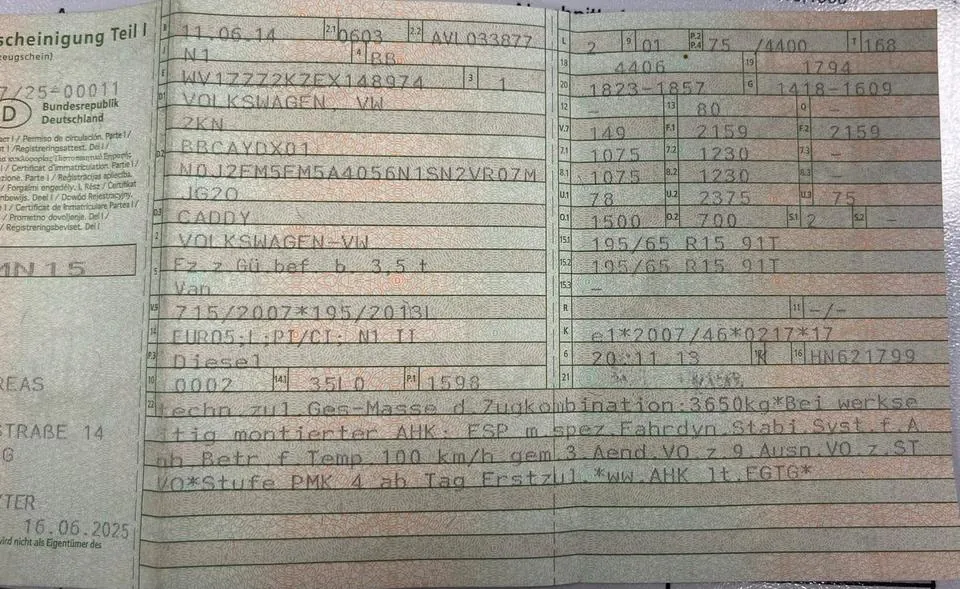 scheinigung Teil I
zeugschein)
7/25-00011
D
Bundesrepublik
Deutschland
MN 15
REAS
STRAßE 14
G
TER
16.06.2025
wird nicht als Eigentümer des
B 11.06.14 2.1 0603 2.2 AVL033877
J N1 4 BB
E WV1ZZZ2KZEX148974 3 1
D.1 VOLKSWAGEN, VW
2KN
D.2 BBCAYDX01
N0J2FM5FM5A4056N1SN2VR07M
JG2O
D.3 CADDY
2 VOLKSWAGEN-VW
5 Fz.z.Gü.bef. b. 3,5 t
Van
V.9 715/2007*195/2013L
14 EURO5;L;PI/CI; N1 II
P.3 Diesel
10 0002 14.1 35L0 P.1 1598
L 2 9 01 P.2 P.4 75 /4400 T 168
18 4406 19 1794
20 1823-1857 G 1418-1609
12 – 13 80 Q –
V.7 149 F.1 2159 F.2 2159
7.1 1075 7.2 1230 7.3 –
8.1 1075 8.2 1230 8.3 –
U.1 78 U.2 2375 U.3 75
O.1 1500 O.2 700 S.1 2 S.2 –
15.1 195/65 R15 91T
15.2 195/65 R15 91T
15.3 –
R 11 –/–
K e1*2007/46*0217*17
6 20.11.13 17 K 16 HN621799
21
22 techn.zul.Ges-Masse d.Zugkombination:3650kg*Bei werkse
itig montierter AHK: ESP m.spez.Fahrdyn.Stabi.Syst.f.A
nh.Betr.f.Temp.100 km/h gem.3.Aend.VO z.9.Ausn.VO z.ST
VO*Stufe PMK 4 ab Tag Erstzul.*ww.AHK lt.EGTG*